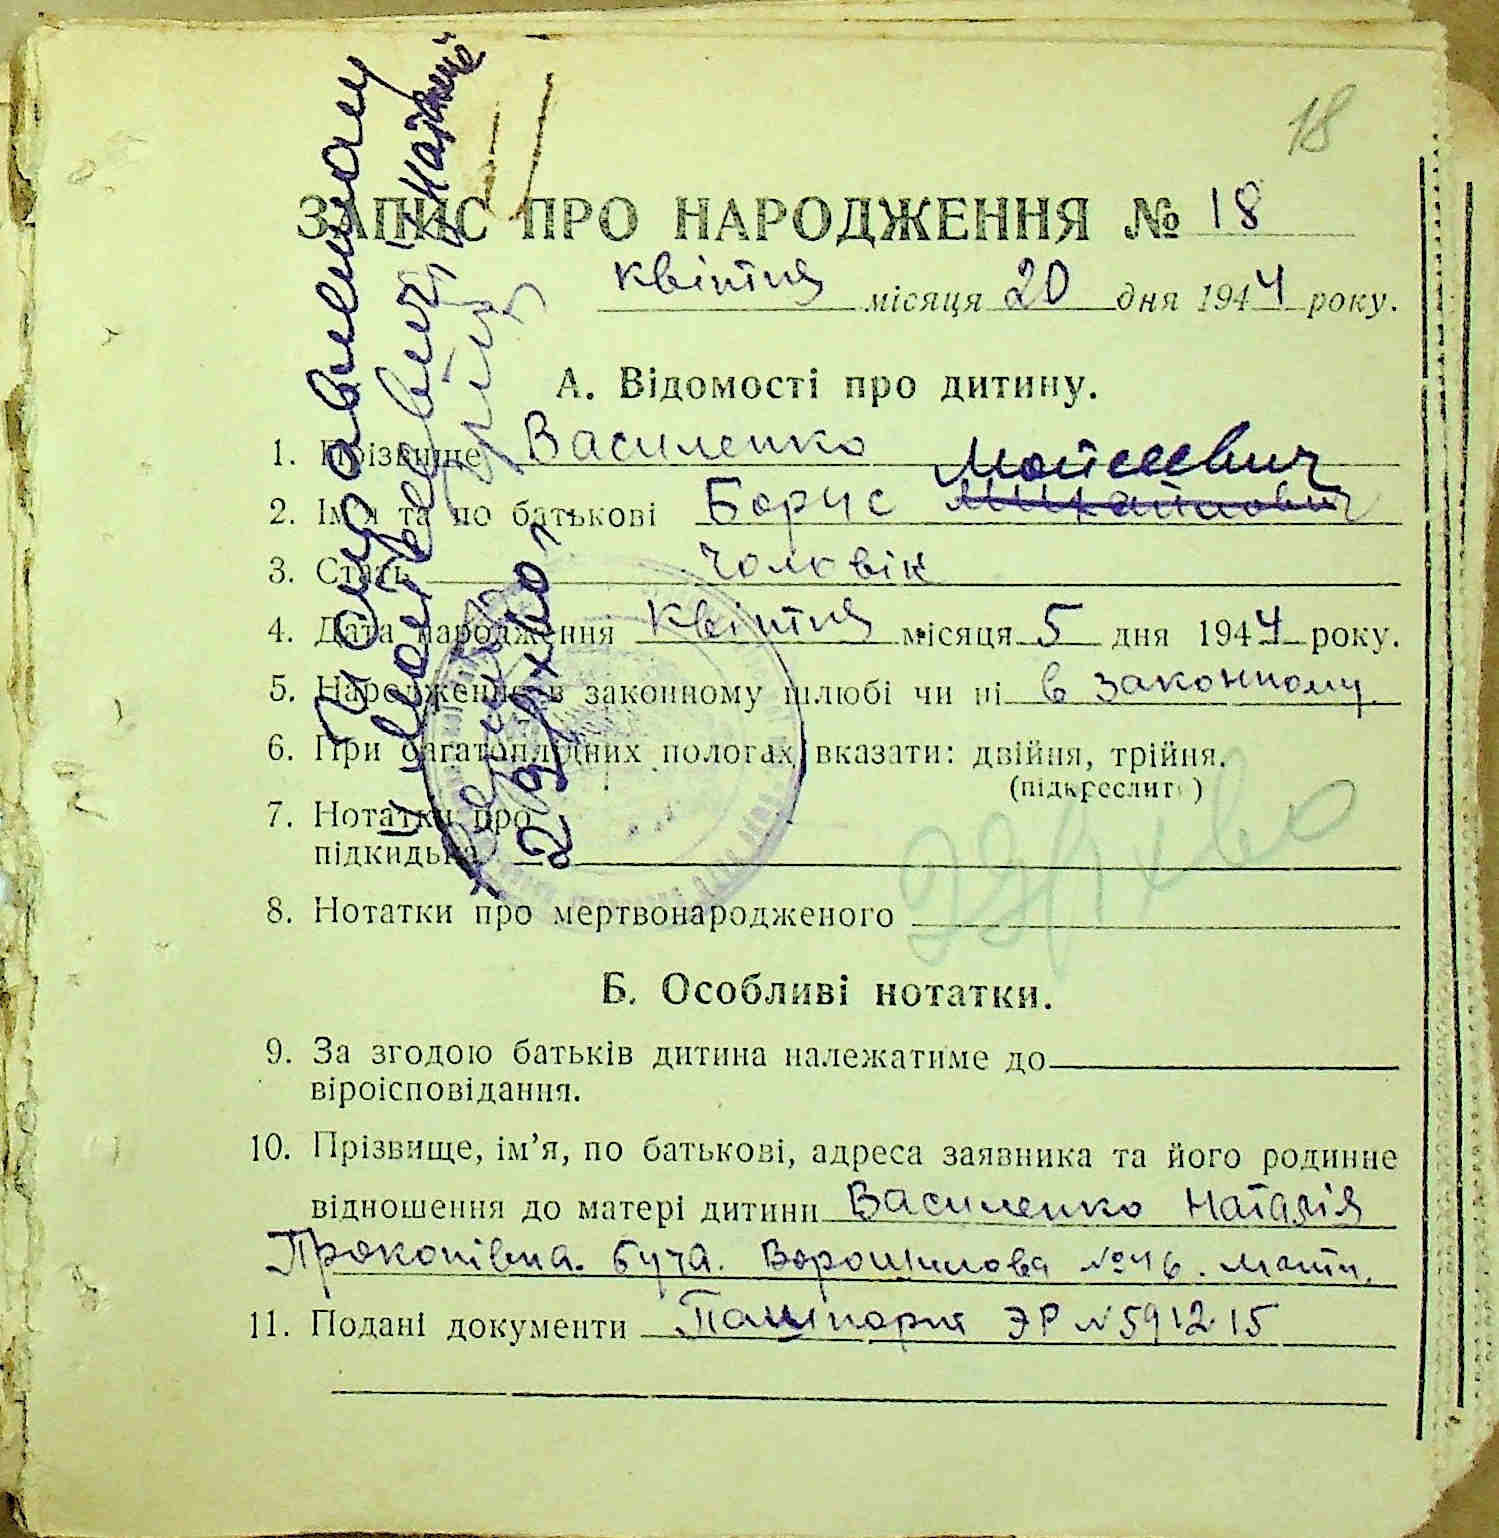 18
ЗАПИС ПРО НАРОДЖЕННЯ № 18
квітня місяця 20 дня 1944 року.
А. Відомості про дитину.
1. Прізвище Василенко
Мойсеевич
2. Ім'я та по батькові Борис
3. Стать чоловік
4. Дата народження квітня місяця 5 дня 1944 року.
5. Народження в законному шлюбі чи ні в законному
6. При багатоплідних пологах вказати: двійня, трійня.
(підкреслити)
7. Нотатки про
підкидька
8. Нотатки про мертвонародженого
Б. Особливі нотатки.
9. За згодою батьків дитина належатиме до
віроісповідання.
10. Прізвище, ім'я, по батькові, адреса заявника та його родинне
відношення до матері дитини Василенко Наталія
Прокопівна. Буча. Ворошилова №46. мати.
11. Подані документи Пашпорт ЭР №591215